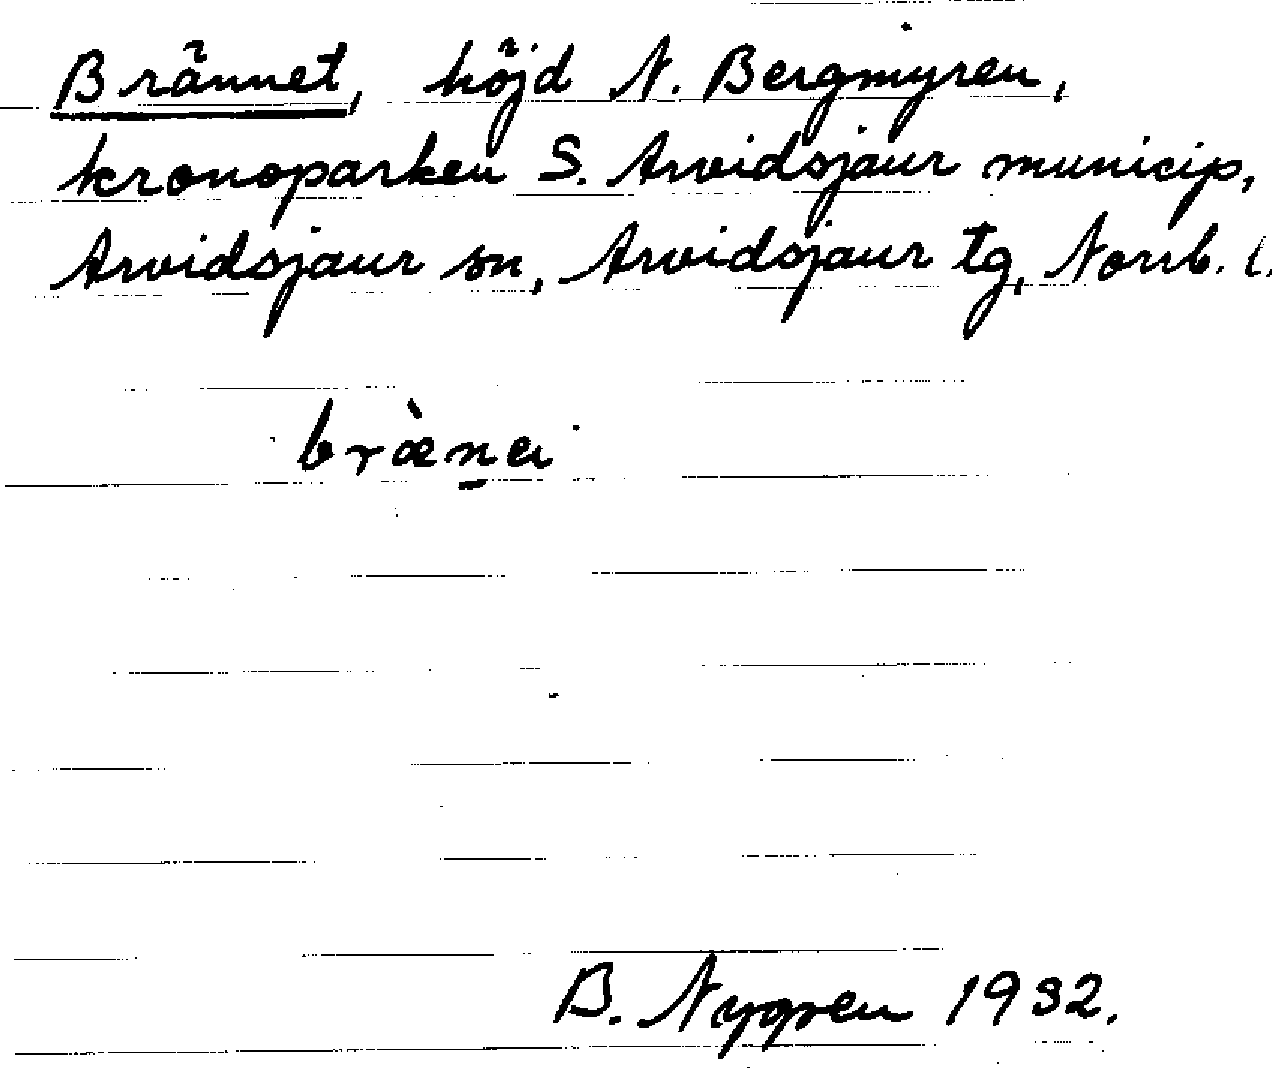 Brännet, höjd N. Bergmyren,
kronoparken S. Arvidsjaur municip,
Arvidsjaur sn, Arvidsjaur tg, Norrb. l.
bræ̀n̠a
B. Nygren 1932.